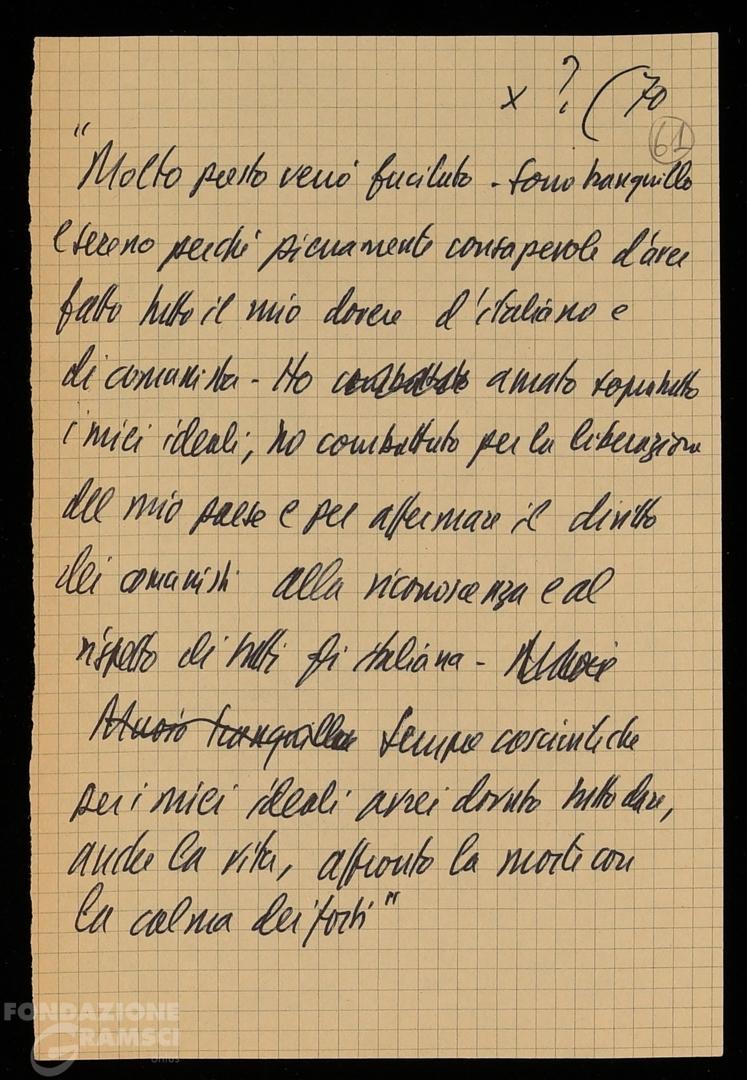 x ? (70
61
"Molto presto verrò fucilato - sono tranquillo
e sereno perché pienamente consapevole d'aver
fatto tutto il mio dovere d'italiano e
di comunista - Ho combattuto amato sopratutto
i miei ideali, ho combattuto per la liberazione
del mio paese e per affermare il diritto
dei comunisti alla riconoscenza e al
rispetto di tutti gli italiana -
Muoio tranquillo sempre cosciente che
per i miei ideali avrei dovuto tutto dare,
anche la vita, affronto la morte con
la calma dei forti"
FONDAZIONE
GRAMSCI
onlus